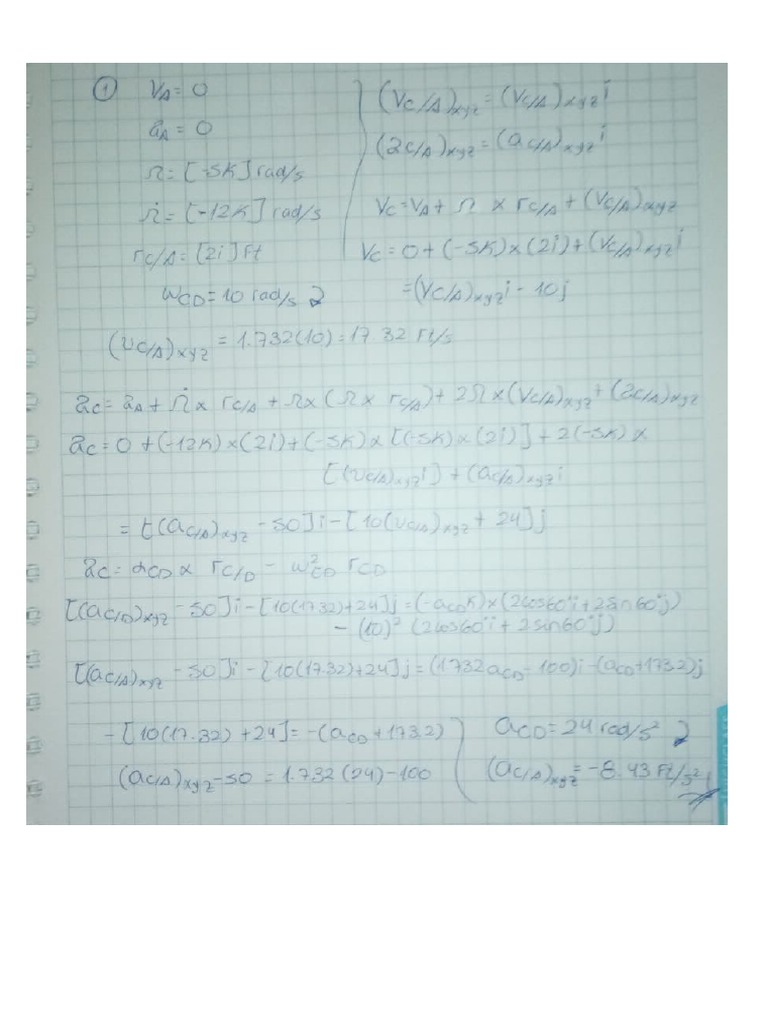 ① VA = 0
aA = 0
Ω = [-5K] rad/s
Ω̇ = [-12K] rad/s
rC/A = [2i] ft
ωCD = 10 rad/s ↻
(VC/A)xyz = (VC/A)xyz i
(aC/A)xyz = (aC/A)xyz i
VC = VA + Ω x rC/A + (VC/A)xyz
VC = 0 + (-5K) x (2i) + (VC/A)xyz i
= (VC/A)xyz i - 10j
(VC/A)xyz = 1.732(10) = 17.32 Ft/s
aC = aA + Ω̇ x rC/A + Ω x (Ω x rC/A) + 2Ω x (VC/A)xyz + (aC/A)xyz
aC = 0 + (-12K) x (2i) + (-5K) x [(-5K) x (2i)] + 2(-5K) x
[(VC/A)xyz i] + (aC/A)xyz i
= [(aC/A)xyz - 50]i - [10(VC/A)xyz + 24]j
aC = αCD x rC/D - ω²CD rCD
[(aC/D)xyz - 50]i - [10(17.32) + 24]j = (-aCD K) x (2cos60°i + 2sin60°j)
- (10)² (2cos60°i + 2sin60°j)
[(aC/A)xyz - 50]i - [10(17.32) + 24]j = (1.732aCD - 100)i - (aCD + 173.2)j
- [10(17.32) + 24] = -(aCD + 173.2)
(aC/A)xyz - 50 = 1.732(24) - 100
aCD = 24 rad/s² ↻
(aC/A)xyz = -8.43 Ft/s²